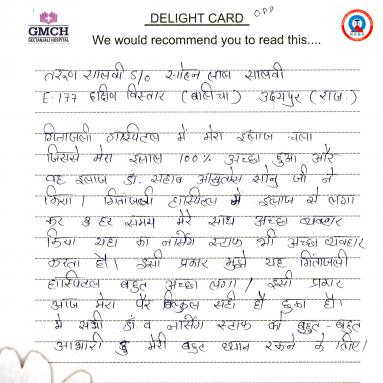 GMCH
GEETANJALI HOSPITAL
DELIGHT CARD
OPD
We would recommend you to read this....
तरूण सालवी S/o सोहन लाल सालवी
E-177 दक्षिण विस्तार (बलिचा) उदयपुर (राज.)
गिंताजली हास्पिटल में मेरा इलाज चला
जिससे मेरा इलाज 100% अच्छा हुआ और
वह इलाज डॉ. सहाब आशुतोष सोनु जी ने
किया। गिंताजली हास्पिटल में इलाज से लगा
कर हर समय मेरे साथ अच्छा व्यवहार
किया यहा का नर्सिंग स्टाफ भी अच्छा व्यवहार
करता है। इसी प्रकार मुझे यह गिंताजली
हास्पिटल बहुत अच्छा लगा। इसी प्रकार
आज मेरा पैर बिल्कुल सही हो चुका है।
में सभी डॉ व नर्सिंग स्टाफ को बहुत-बहुत
आभारी हु मेरी बहुत ध्यान रकने के लिए।